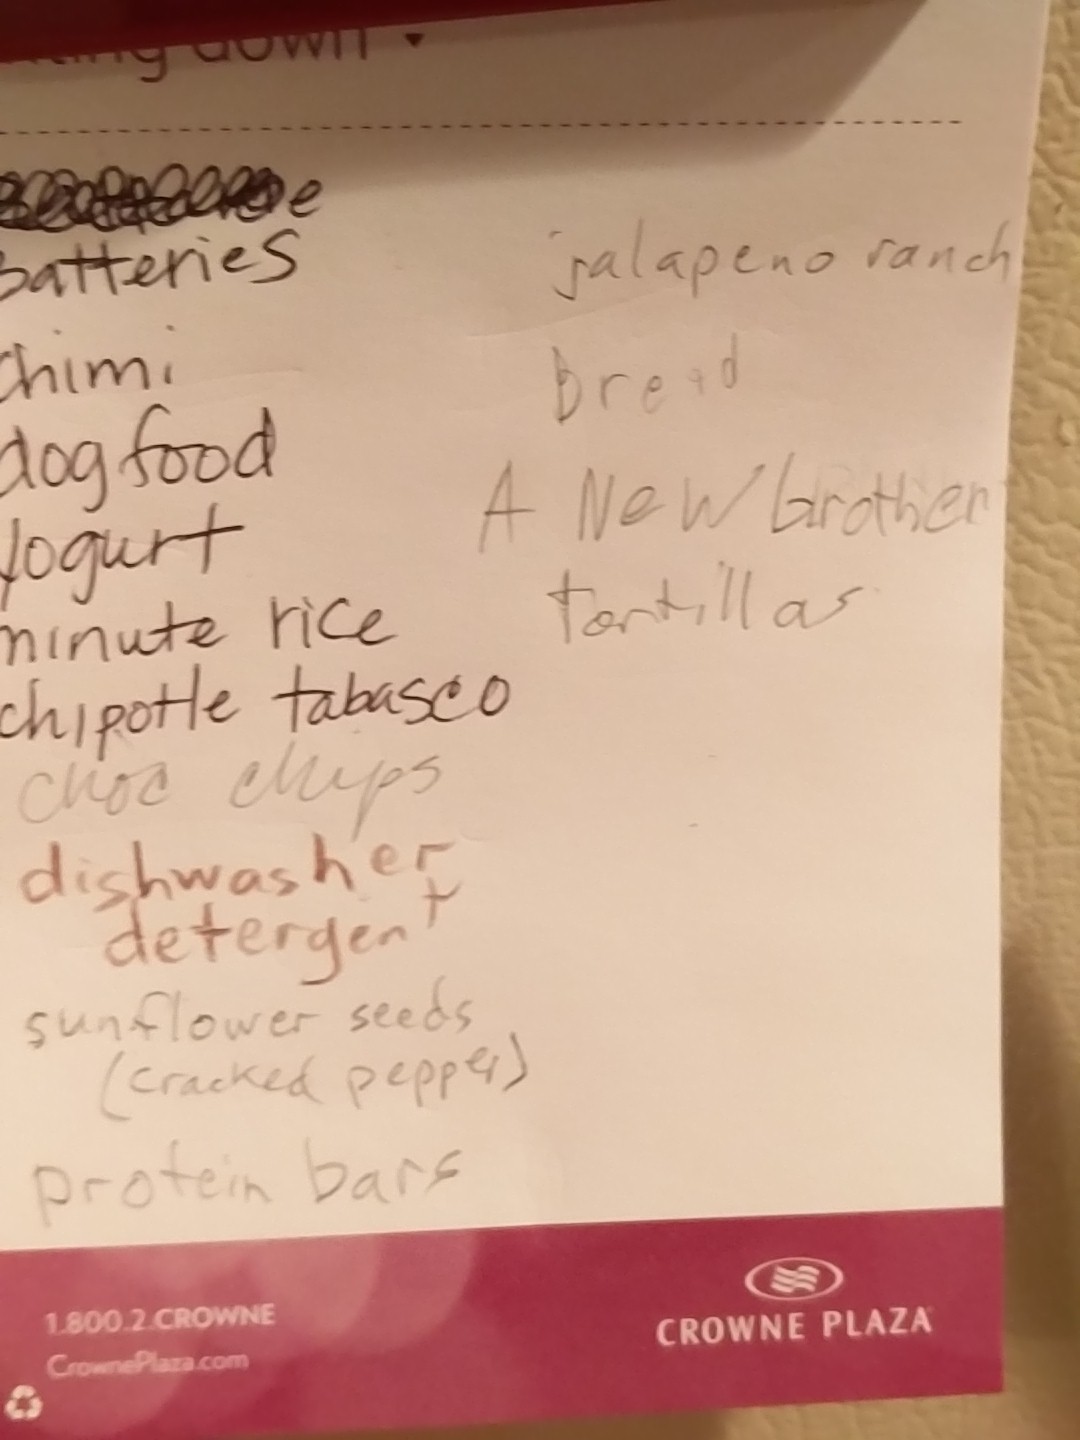 down
batteries
chimi
dog food
yogurt
minute rice
chipotle tabasco
choc chips
dishwasher
detergent
sunflower seeds
(cracked pepper)
protein bars
jalapeno ranch
Bread
A New brother
tortillas
1.800.2.CROWNE
CrownePlaza.com
CROWNE PLAZA